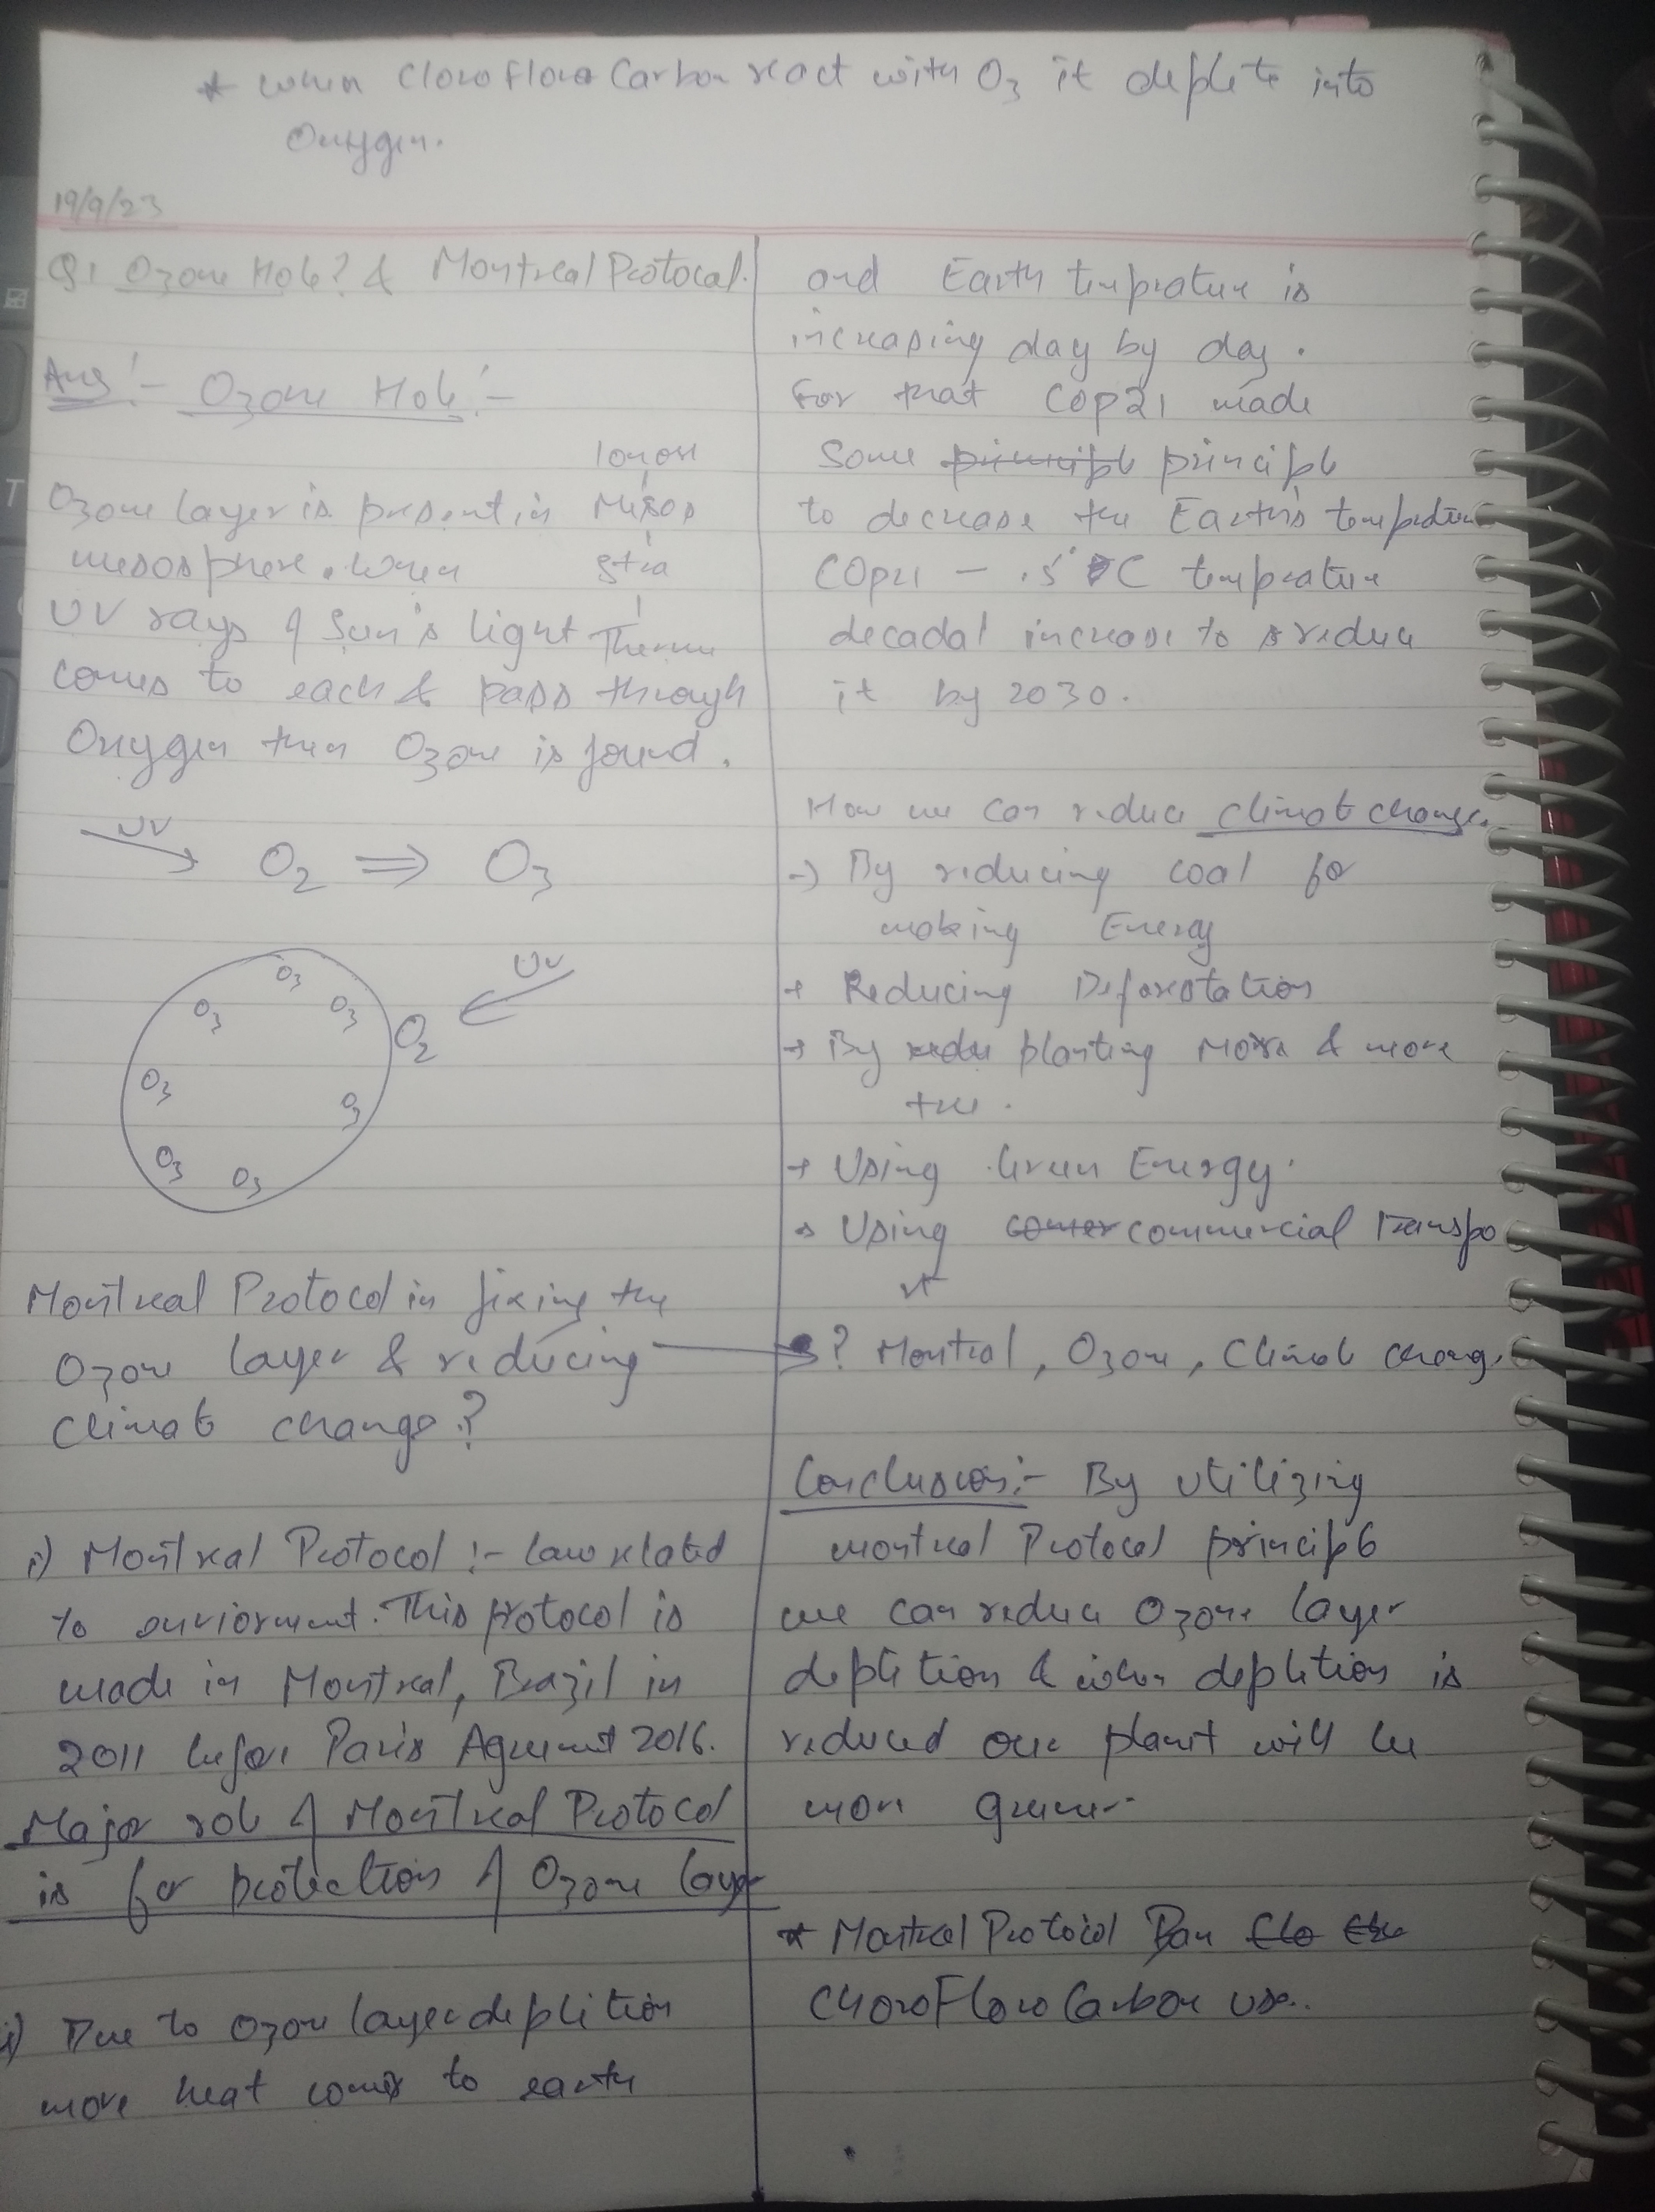 * when Cloro Floro Carbon react with O3 it deplete into
Oxygen.
19/9/23
Q1 Ozone Hole? & Montreal Protocal.
Ans:- Ozone Hole:-
Ozone layer is present in
mesosphere. when
UV rays of Sun's light
comes to each & pass through
Oxygen then Ozone is found.
Mesos
Stra
Thermo
UV
O2 ⇒ O3
O3
O3
O3
O2
UV
O3
O3
O3
O3
Montreal Protocol in fixing the
Ozone layer & reducing
climate change?
i) Montreal Protocol :- law related
to enviorment. This protocol is
made in Montreal, Brazil in
2011 before Paris Agreement 2016.
Major role of Montreal Protocol
is for protection of Ozone layer
ii) Due to ozone layer deplition
more heat comes to earth
and Earth temprature is
increasing day by day.
For that COP21 made
Some principle principle
to decrease the Earth's temprature
COP21 - .5°C temprature
decadal increase to reduce
it by 2030.
How we can reduce climate change.
→ By reducing coal for
making Energy
→ Reducing Deforestation
→ By redu planting more & more
tree.
→ Using Green Energy.
→ Using commercial Transpo
rt
? Montreal, Ozone, Climate change.
Conclusion:- By utilizing
montreal Protocol principle
we can reduce Ozone layer
deplition & when deplition is
reduced our planet will be
more greener.
* Montreal Protocol Ban Clo
ChoroFloro Carbon use..